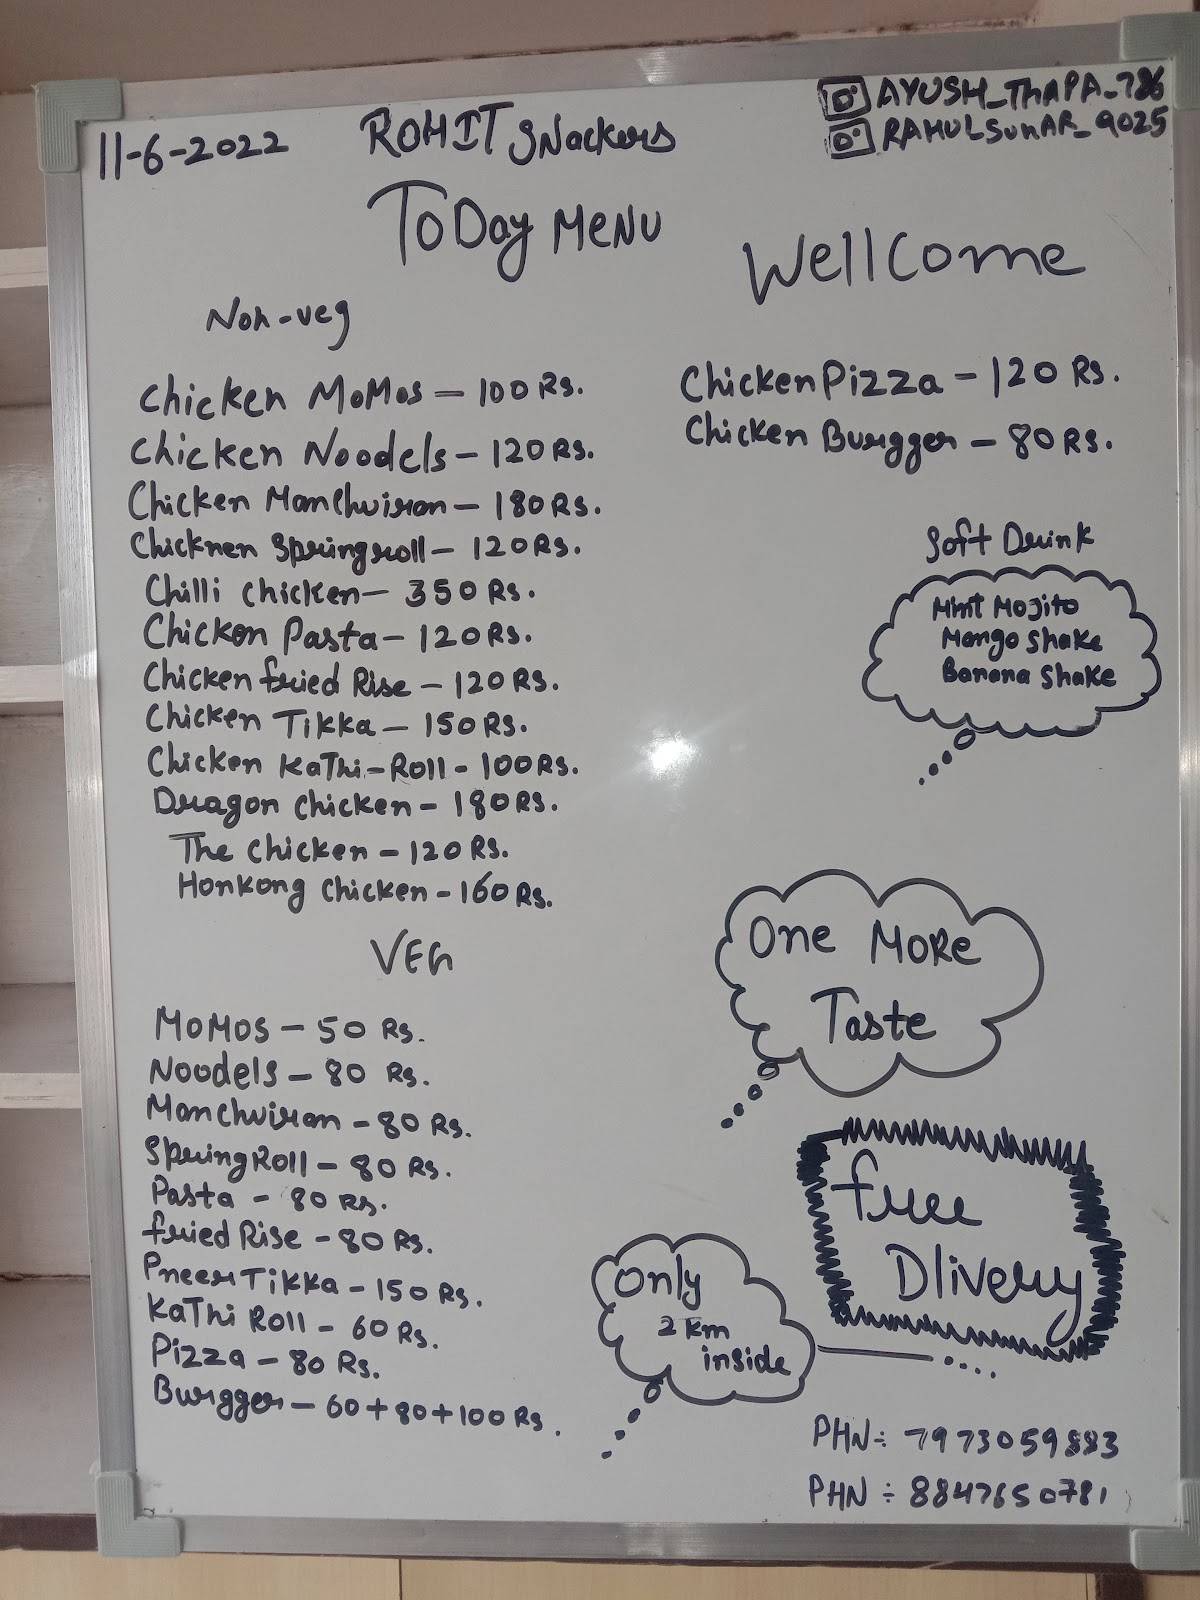 11-6-2022
ROHIT SNackers
AYUSH_ThAPA_786
RAHULSUNAR_9025
ToDay MENU
Wellcome
Non-veg
Chicken MoMos - 100 Rs.
Chicken Noodels - 120 Rs.
Chicken Manchuiran - 180 Rs.
Chicknen Springroll - 120 Rs.
Chilli chicken - 350 Rs.
Chicken Pasta - 120 Rs.
Chicken fried Rise - 120 Rs.
Chicken Tikka - 150 Rs.
Chicken KaThi-Roll - 100 Rs.
Dragon chicken - 180 Rs.
The chicken - 120 Rs.
Honkong chicken - 160 Rs.
Chicken Pizza - 120 Rs.
Chicken Burgger - 80 Rs.
Soft Drink
Mint Mojito
Mango Shake
Banana Shake
VEG
MoMos - 50 Rs.
Noodels - 80 Rs.
Manchuiran - 80 Rs.
Spring Roll - 80 Rs.
Pasta - 80 Rs.
fried Rise - 80 Rs.
Pneer Tikka - 150 Rs.
KaThi Roll - 60 Rs.
Pizza - 80 Rs.
Burgger - 60+80+100 Rs.
One MORe
Taste
free
Dlivery
only
2 km
inside
PHN÷ 7973059883
PHN÷ 8847650781